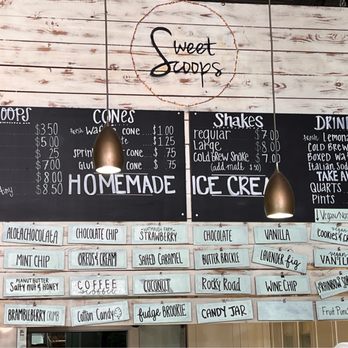 Sweet
Scoops
OOPS
$3.50
$5.00
$ .25
$7.00
$8.00
$8.50
CONES
cone $1.00
cone $1.25
cone $ .75
$ .75
HOMEMADE
Shakes
regular $7.00
Large $8.00
Cold Brew Shake $7.00
(add malt $.50)
ICE CREAM
DRIN
Lemona
Cold Brew
Boxed Wa
Italian Sod
TAKE AW
Quarts
Pints
ALOEACHOCOLATA
CHOCOLATE CHIP
STRAWBERRY
CHOCOLATE
VANILLA
COOKIES & C
MINT CHIP
OREOS & CREAM
SALTED CARAMEL
BUTTER BRICKLE
LAVENDER FIG
PEANUT BUTTER
SALTY NUT & HONEY
COFFEE
COCONUT
ROCKY ROAD
WINE CHIP
BRAMBLEBERRY CRUMB
COTTON CANDY
fudge BROOKIE
CANDY JAR
Fruit Punc